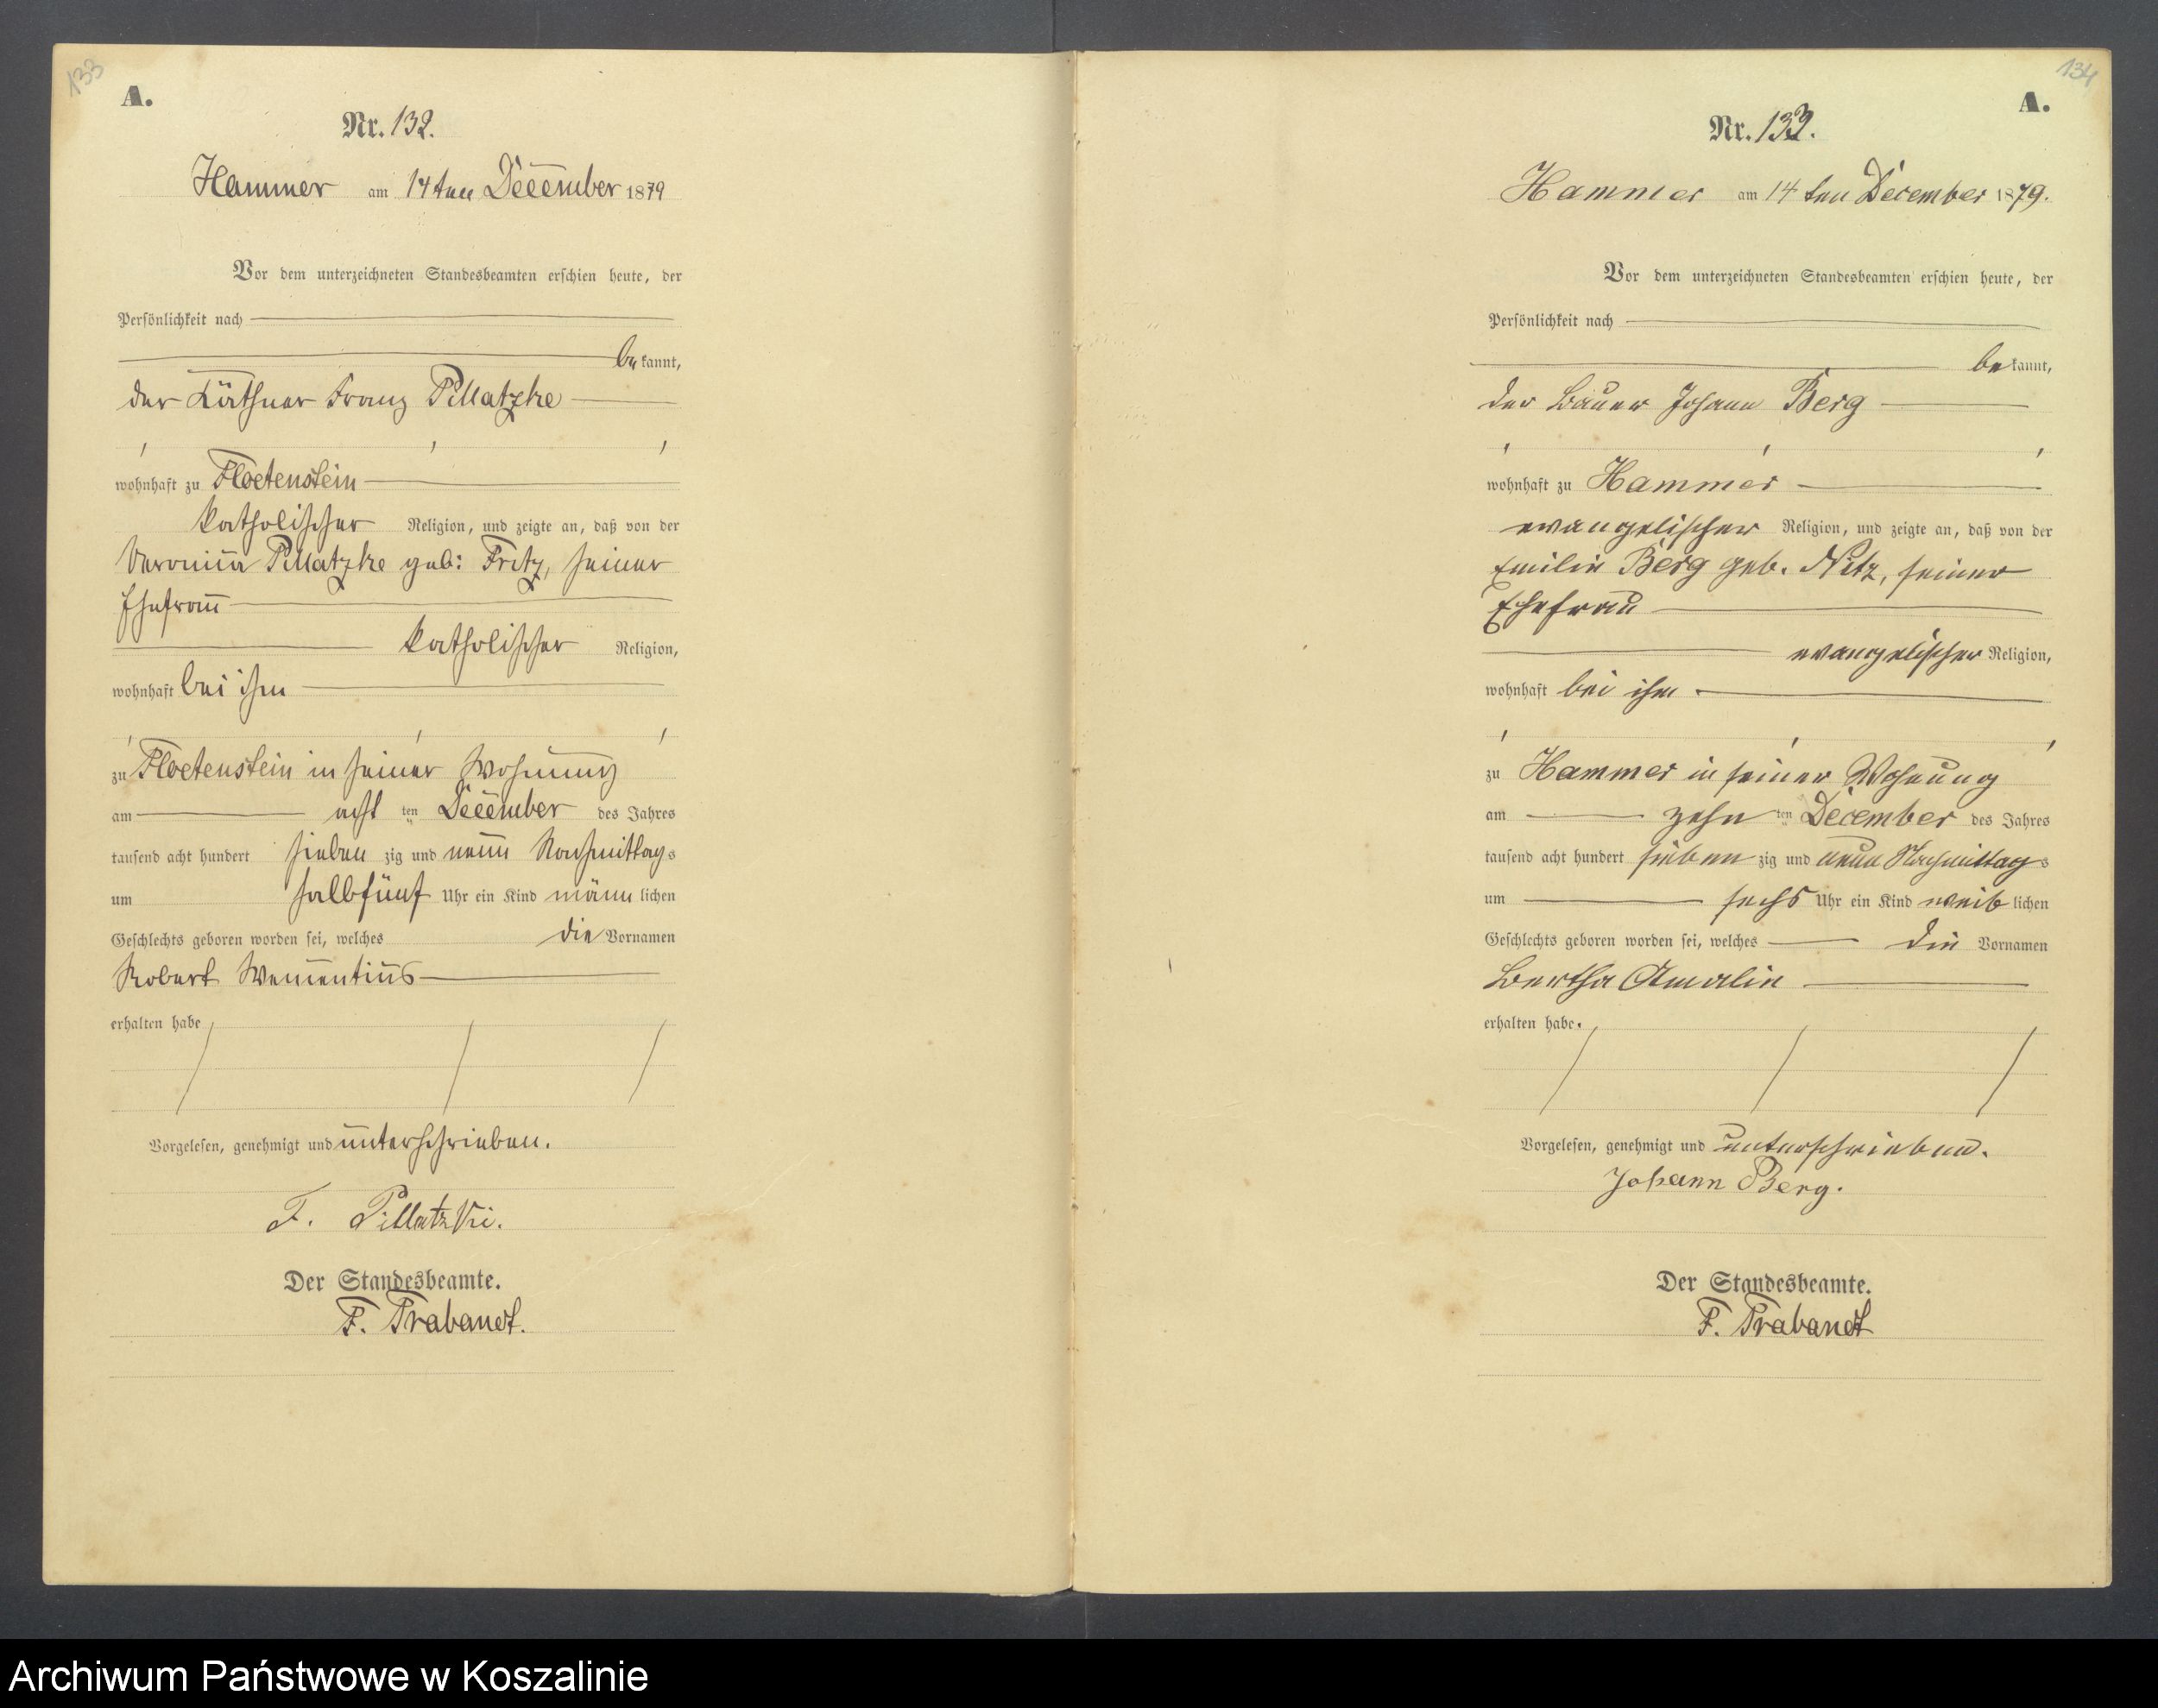 133
A.
Nr. 132.
Hammer am 14ten December 1879
Vor dem unterzeichneten Standesbeamten erschien heute, der
Persönlichkeit nach
bekannt,
der Käthner Franz Pillatzke
wohnhaft zu Floetenstein
katholischer Religion, und zeigte an, daß von der
Veronica Pillatzke geb: Fritz, seiner
Ehefrau
katholischer Religion,
wohnhaft bei ihm
zu Floetenstein in seiner Wohnung
am acht ten December des Jahres
tausend acht hundert sieben zig und neun Nachmittags
um halbfünf Uhr ein Kind männlichen
Geschlechts geboren worden sei, welches die Vornamen
Robert
erhalten habe
Vorgelesen, genehmigt und unterschrieben.
F. Pillatzki.
Der Standesbeamte.
F. Trabandt.
134
A.
Nr. 133.
Hammer am 14 ten December 1879.
Vor dem unterzeichneten Standesbeamten erschien heute, der
Persönlichkeit nach
bekannt,
der Bauer Johann Berg
wohnhaft zu Hammer
evangelischer Religion, und zeigte an, daß von der
Emilie Berg geb. Nitz, seiner
Ehefrau
evangelischer Religion,
wohnhaft bei ihm
zu Hammer in seiner Wohnung
am zehn ten December des Jahres
tausend acht hundert sieben zig und neun Nachmittags
um sechs Uhr ein Kind weiblichen
Geschlechts geboren worden sei, welches die Vornamen
Bertha Amalie
erhalten habe.
Vorgelesen, genehmigt und unterschrieben.
Johann Berg.
Der Standesbeamte.
F. Trabandt
Archiwum Państwowe w Koszalinie